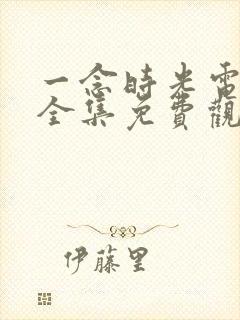 一念時光電
全集免費觀
伊藤里